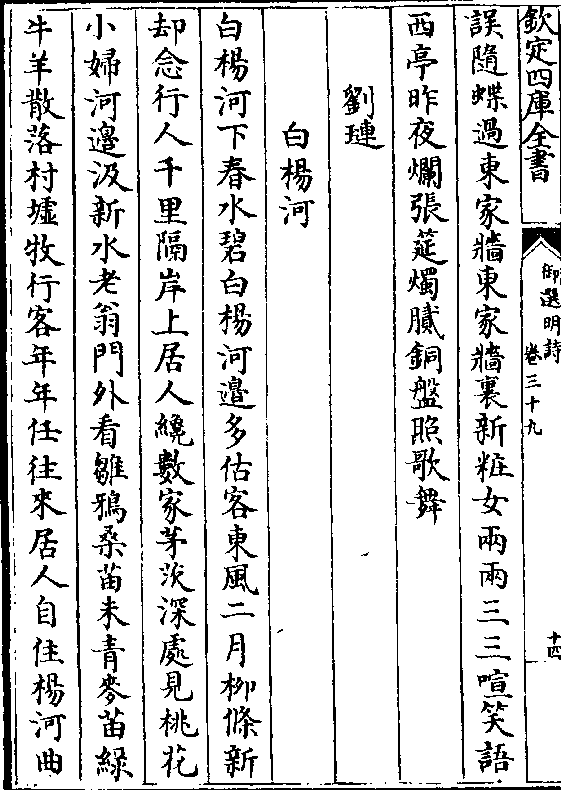 欽定四庫全書
御選明詩
卷三十九
十四
誤隨蝶過東家牆東家牆裏新粧女兩兩三三喧笑語
西亭昨夜爛張筵燭膩銅盤照歌舞
劉璉
白楊河
白楊河下春水碧白楊河邊多估客東風二月柳條新
却念行人千里隔岸上居人纔數家茅茨深處見桃花
小婦河邊汲新水老翁門外看雛鴉桑苗未青麥苗綠
牛羊散落村墟牧行客年年任往來居人自住楊河曲